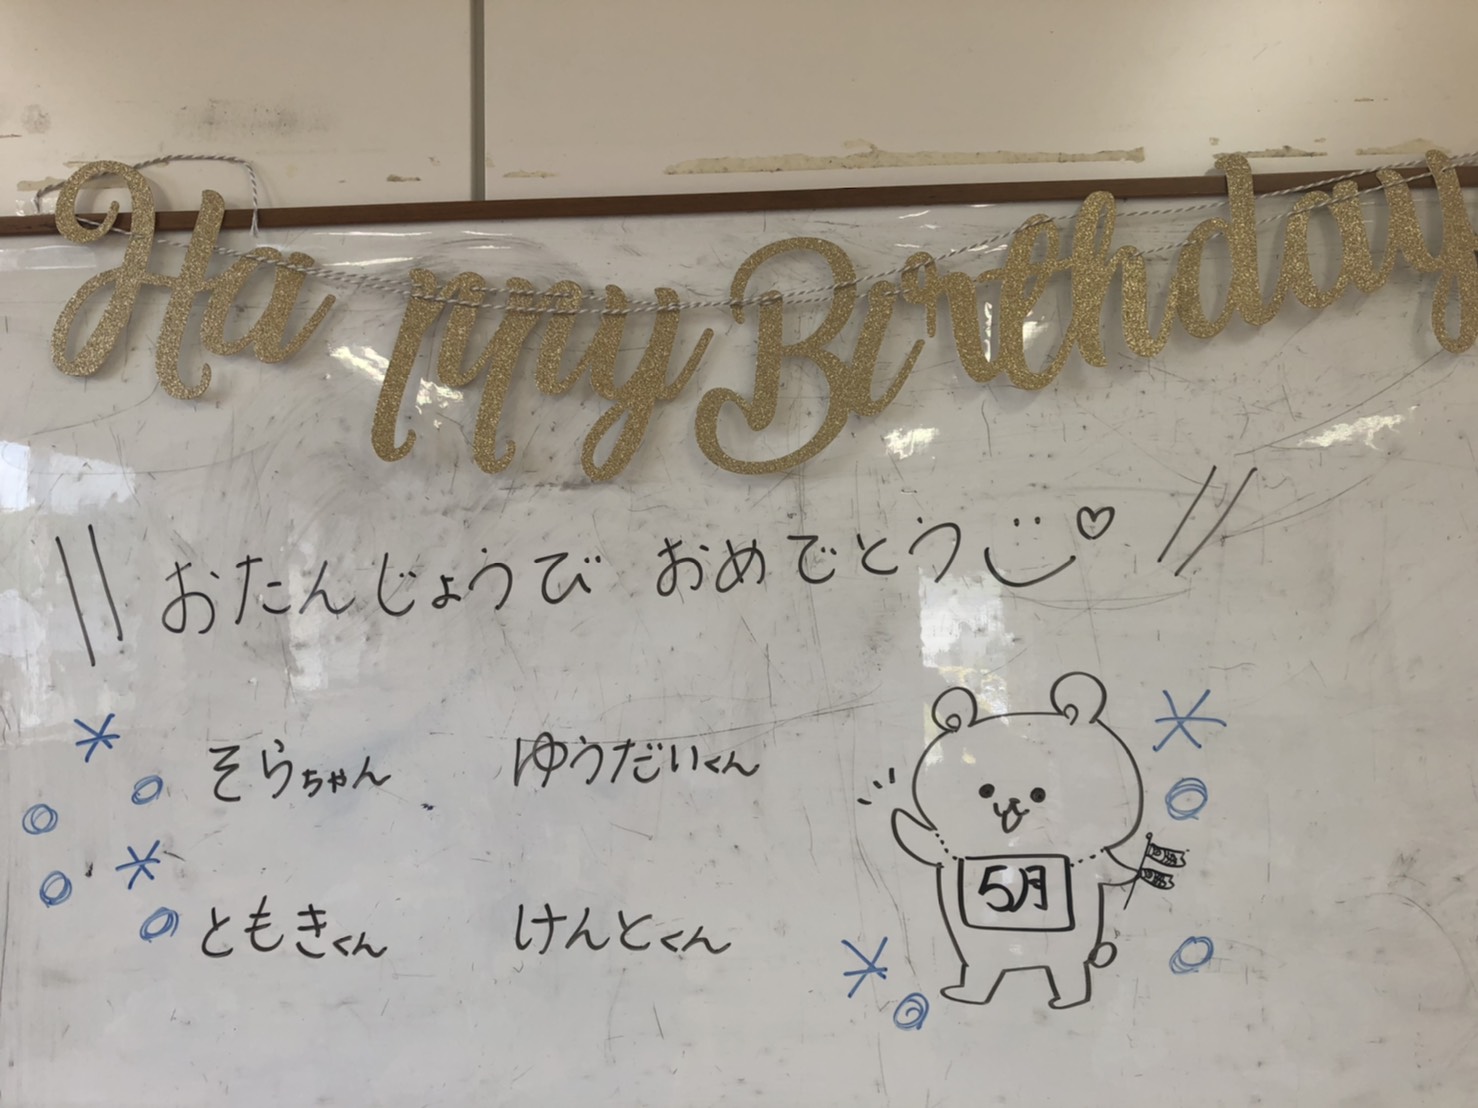 Happy Birthday
おたんじょうび おめでとう
そらちゃん ゆうだいくん
ともきくん けんとくん
5月